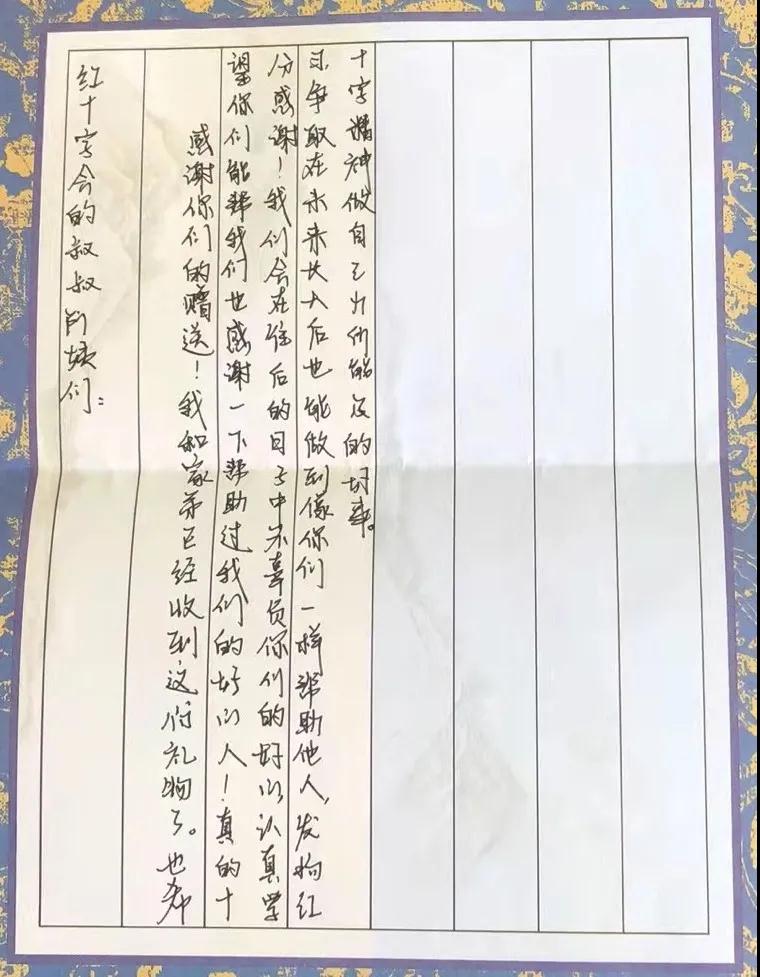 红十字会的叔叔阿姨们：
感谢你们的赠送！我和家弟已经收到这份礼物了。也希
望你们能帮我们也感谢一下帮助过我们的好心人！真的十
分感谢！我们会在往后的日子中不辜负你们的好心，认真学
习，争取在未来长大后也能做到像你们一样帮助他人，发扬红
十字精神做自己力所能及的好事。